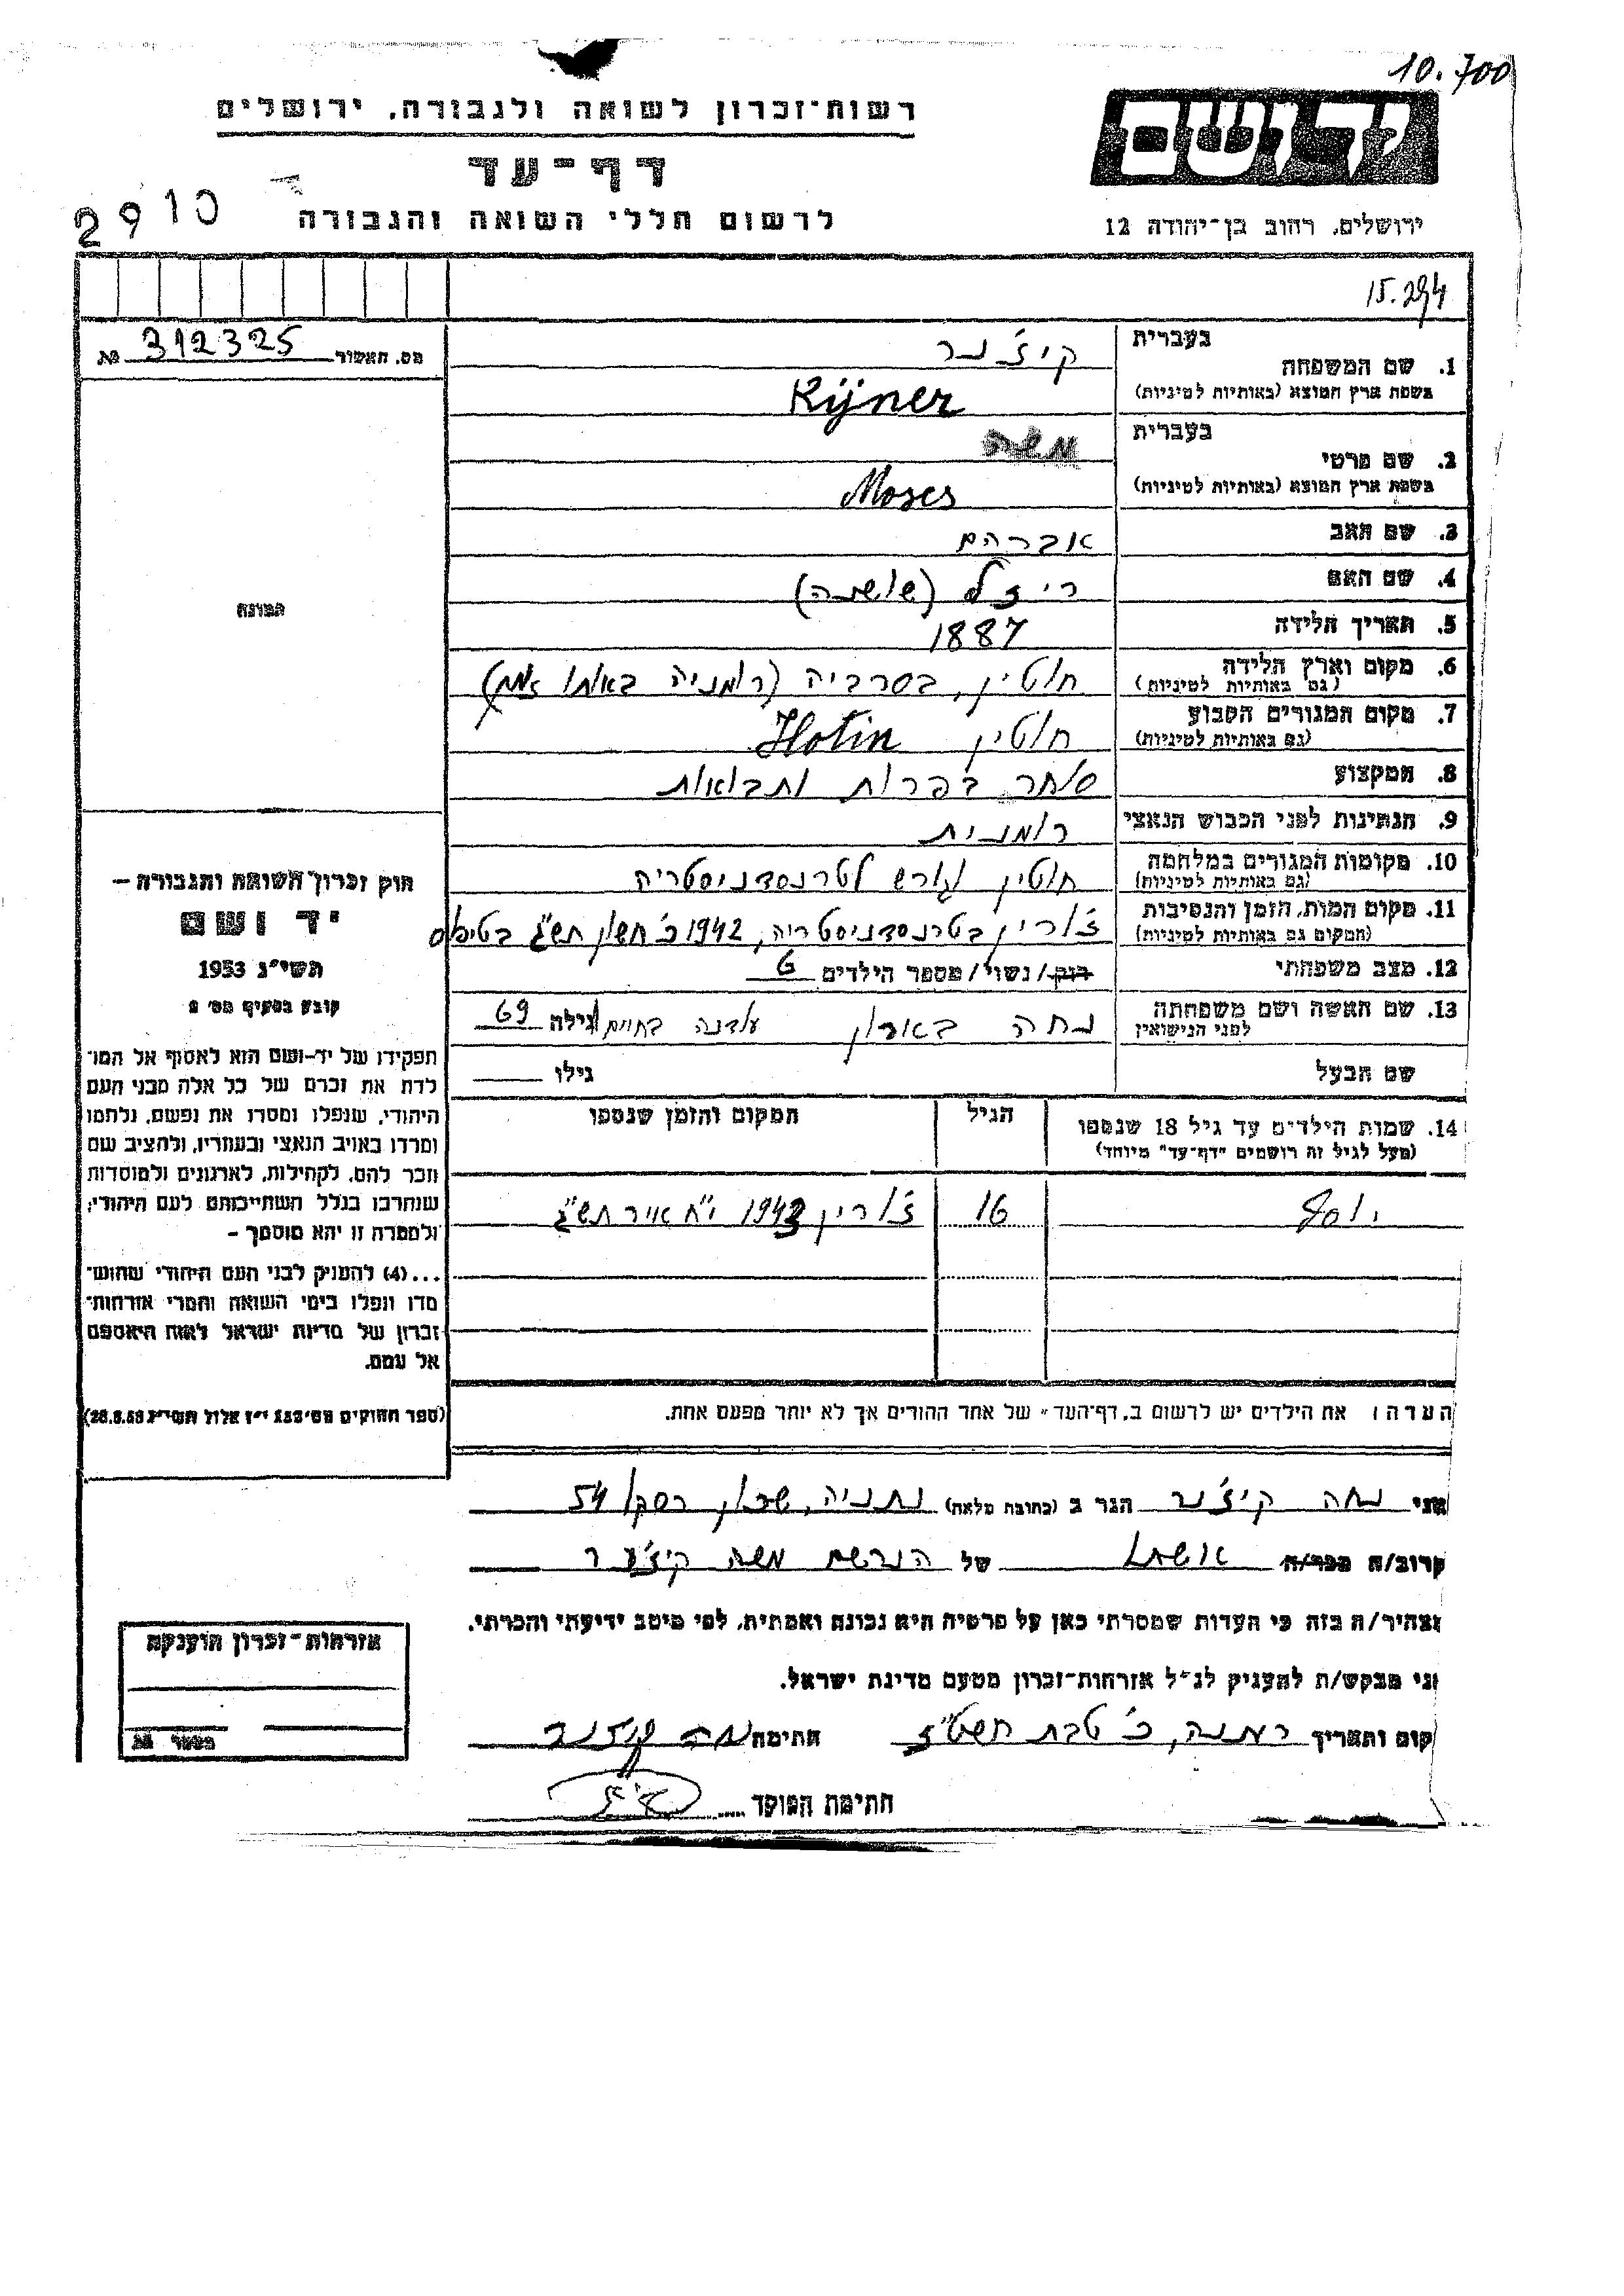 10.700
רשות-זכרון לשואה ולגבורה, ירושלים
דף-עד
לרשום חללי השואה והגבורה
2910
ירושלים, רחוב בן-יהודה 12
15.294
מס. האשור 312325
בעברית
1. שם המשפחה קיז'נר
בשפת ארץ המוצא (באותיות לטיניות) Kijner
בעברית
2. שם פרטי משה
בשפת ארץ המוצא (באותיות לטיניות) Moses
3. שם האב אברהם
4. שם האם ריזל (שושנה)
5. תאריך הלידה 1887
6. מקום וארץ הלידה חוטין, בסרביה (רומניה באותו זמן)
(גם באותיות לטיניות)
7. מקום המגורים הקבוע חוטין Hotin
(גם באותיות לטיניות)
8. המקצוע סוחר בפרות ותבואות
9. הנתינות לפני הכבוש הנאצי רומנית
10. מקומות המגורים במלחמה חוטין וגורש לטרנסדניסטריה
(גם באותיות לטיניות)
11. מקום המות, הזמן והנסיבות ז'ורין בטרנסדניסטריה, 1942 כ' חשון תש"ג בטיפוס
(המקום גם באותיות לטיניות)
12. מצב משפחתי רווק/נשוי/מספר הילדים 6
13. שם האשה ושם משפחתה נחה בארון עודנה בחיים גילה 69
לפני הנישואין
שם הבעל גילו
14. שמות הילדים עד גיל 18 שנספו הגיל המקום והזמן שנספו
(מעל לגיל זה רושמים "דף-עד" מיוחד)
יוסף 16 ז'ורין 1943 י"ח אייר תש"ג
הערה: את הילדים יש לרשום ב"דף-העד" של אחד ההורים אך לא יותר מפעם אחת.
התמונה
חוק זכרון השואה והגבורה –
יד ושם
תשי"ג 1953
קובע בסעיף מס' 2
תפקידו של יד-ושם הוא לאסוף אל המו-
לדת את זכרם של כל אלה מבני העם
היהודי, שנפלו ומסרו את נפשם, נלחמו
ומרדו באויב הנאצי ובעוזריו, ולהציב שם
וזכר להם, לקהילות, לארגונים ולמוסדות
שנחרבו בגלל השתייכותם לעם היהודי;
ולמטרה זו יהא מוסמך –
...(4) להעניק לבני העם היהודי שהוש-
מדו ונפלו בימי השואה והמרי אזרחות-
זכרון של מדינת ישראל לאות היאספם
אל עמם.
(ספר החוקים מס' 132 י"ז אלול תשי"ג 28.8.53)
אני נחה קיז'נר הגר ב (כתובת מלאה) נתניה, שכון רסקו 54
קרוב/ה מכר/ה אשתו של הנרשם משה קיז'נר
מצהיר/ה בזה כי העדות שמסרתי כאן על פרטיה היא נכונה ואמתית, לפי מיטב ידיעתי והכרתי.
אני מבקש/ת להעניק לנ"ל אזרחות-זכרון מטעם מדינת ישראל.
מקום ותאריך נתניה, כ' טבת תשט"ז חתימה נחה קיזנר
חתימת הפוקד
אזרחות-זכרון הוענקה